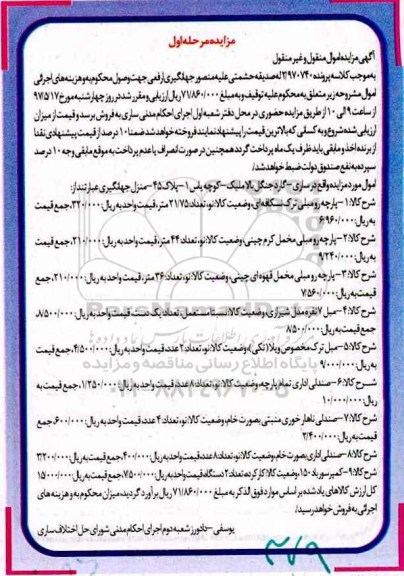 مزایده مرحله اول
آگهی مزایده اموال منقول و غیر منقول
به موجب کلاسه پرونده ۲/۹۷۰۷۴۰ له صدیقه حشمتی علیه منصور جهلگیری ارفعی جهت وصول محکوم به و هزینه های اجرائی
اموال مشروحه زیر متعلق به محکوم علیه توقیف و به مبلغ ۷۱/۸۶۰/۰۰۰ ریال ارزیابی و مقرر شد در روز چهارشنبه مورخ ۹۷/۵/۱۷
از ساعت ۹ الی ۱۰ از طریق مزایده حضوری در محل دفتر شعبه اول اجرای احکام مدنی ساری به فروش برسد و قیمت از میزان
ارزیابی شده شروع و به کسانی که بالاترین قیمت را پیشنهاد نمایند فروخته خواهد شد ضمنا ۱۰ درصد از قیمت پیشنهادی نقدا
از برنده اخذ و مابقی باید ظرف یک ماه پرداخت گردد همچنین در صورت انصراف یا عدم پرداخت به موقع مابقی وجه ۱۰ درصد
سپرده به نفع صندوق دولت ضبط خواهد شد/
اموال مورد مزایده واقع در ساری – گارد جنگل بالا ملیک – کوچه یاس ۱ – پلاک ۴۵ – منزل جهلگیری عبارتند از:
شرح کالا: ۱ – پارچه رومبلی ترک نسکافه ای، وضعیت کالا: نو، تعداد: ۲۱/۷۵ متر، قیمت واحد به ریال: ۳۲۰/۰۰۰، جمع قیمت
به ریال: ۶/۹۶۰/۰۰۰
شرح کالا: ۲ – پارچه رومبلی مخمل کرم چینی، وضعیت کالا: نو، تعداد: ۴۴ متر، قیمت واحد به ریال: ۲۱۰/۰۰۰، جمع قیمت
به ریال: ۹/۲۴۰/۰۰۰
شرح کالا: ۳ – پارچه رومبلی مخمل قهوه ای چینی، وضعیت کالا: نو، تعداد: ۳۶ متر، قیمت واحد به ریال: ۲۱۰/۰۰۰، جمع
قیمت به ریال: ۷/۵۶۰/۰۰۰
شرح کالا: ۴ – مبل ۷ نفره مدل شیرازی، وضعیت کالا: نسبتا مستعمل، تعداد: یک دست، قیمت واحد به ریال: ۸/۵۰۰/۰۰۰،
جمع قیمت به ریال: ۸/۵۰۰/۰۰۰
شرح کالا: ۵ – مبل ترک مخصوص ویلا (تکی)، وضعیت کالا: نو، تعداد: ۲ عدد، قیمت واحد به ریال: ۴/۵۰۰/۰۰۰، جمع قیمت
به ریال: ۹/۰۰۰/۰۰۰
شرح کالا: ۶ – صندلی اداری تمام پارچه، وضعیت کالا: نو، تعداد: ۸ عدد، قیمت واحد به ریال: ۱/۲۵۰/۰۰۰، جمع قیمت به
ریال: ۱۰/۰۰۰/۰۰۰
شرح کالا: ۷ – صندلی ناهار خوری منبتی بصورت خام، وضعیت کالا: نو، تعداد: ۴ عدد، قیمت واحد به ریال: ۶۰۰/۰۰۰، جمع
قیمت به ریال: ۲/۴۰۰/۰۰۰
شرح کالا: ۸ – صندلی اداری بصورت خام، وضعیت کالا: نو، تعداد: ۸ عدد، قیمت واحد به ریال: ۴۰۰/۰۰۰، جمع قیمت به ریال: ۳/۲۰۰/۰۰۰
شرح کالا: ۹ – کمپرسور باد ۱۵۰، وضعیت کالا: کارکرده، تعداد: ۲ دستگاه، قیمت واحد به ریال: ۷/۵۰۰/۰۰۰، جمع قیمت به ریال: ۱۵/۰۰۰/۰۰۰
کل ارزش کالاهای یاد شده بر اساس موارد فوق الذکر به مبلغ ۷۱/۸۶۰/۰۰۰ ریال برآورد گردید، میزان محکوم به و هزینه های
اجرائی به فروش خواهد رسید/
یوسفی – دادورز شعبه دوم اجرای احکام مدنی شورای حل اختلاف ساری
۳۷۹